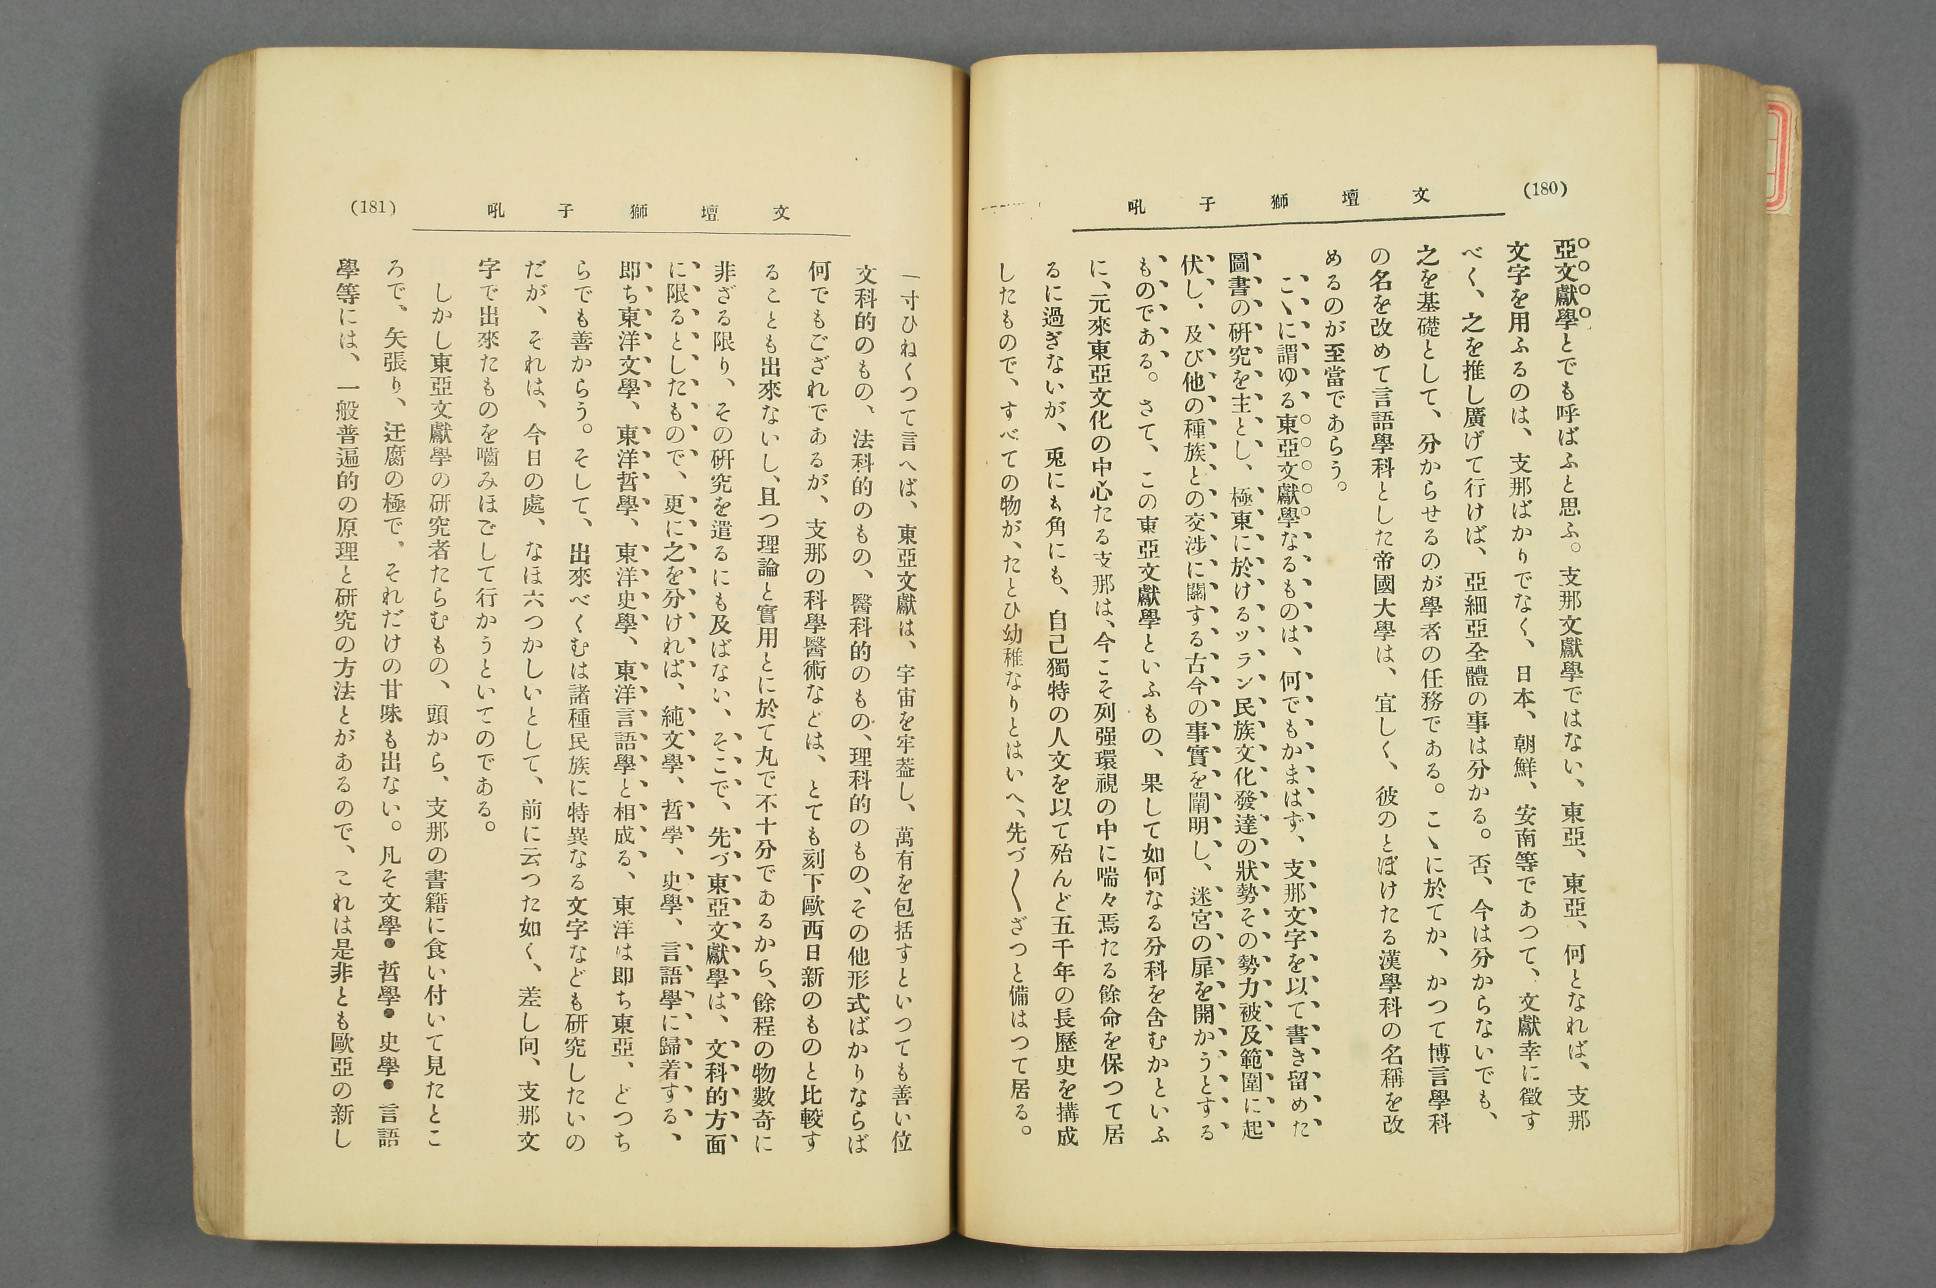 (180)
文壇獅子吼
亞文獻學とでも呼ばふと思ふ。支那文獻學ではない、東亞、東亞、何となれば、支那
文字を用ふるのは、支那ばかりでなく、日本、朝鮮、安南等であつて、文獻幸に徵す
べく、之を推し廣げて行けば、亞細亞全體の事は分かる。否、今は分からないでも、
之を基礎として、分からせるのが學者の任務である。こゝに於てか、かつて博言學科
の名を改めて言語學科とした帝國大學は、宜しく、彼のとぼけたる漢學科の名稱を改
めるのが至當であらう。
こゝに謂ゆる東亞文獻學なるものは、何でもかまはず、支那文字を以て書き留めた
圖書の硏究を主とし、極東に於けるツラン民族文化發達の狀勢その勢力被及範圍に起
伏し、及び他の種族との交涉に關する古今の事實を闡明し、迷宮の扉を開かうとする
ものである。さて、この東亞文獻學といふもの、果して如何なる分科を含むかといふ
に、元來東亞文化の中心たる支那は、今こそ列强環視の中に喘々焉たる餘命を保つて居
るに過ぎないが、兎にも角にも、自己獨特の人文を以て殆んど五千年の長歷史を搆成
したもので、すべての物が、たとひ幼稚なりとはいへ、先づ〱ざつと備はつて居る。
(181)
文壇獅子吼
一寸ひねくつて言へば、東亞文獻は、宇宙を牢蓋し、萬有を包括すといつても善い位
文科的のもの、法科的のもの、醫科的のもの、理科的のもの、その他形式ばかりならば
何でもござれであるが、支那の科學醫術などは、とても刻下歐西日新のものと比較す
ることも出來ないし、且つ理論と實用とに於て丸で不十分であるから、餘程の物數奇に
非ざる限り、その硏究を遣るにも及ばない、そこで、先づ東亞文獻學は、文科的方面
に限るとしたもので、更に之を分ければ、純文學、哲學、史學、言語學に歸着する、
即ち東洋文學、東洋哲學、東洋史學、東洋言語學と相成る、東洋は即ち東亞、どつち
らでも善からう。そして、出來べくむは諸種民族に特異なる文字なども研究したいの
だが、それは、今日の處、なほ六つかしいとして、前に云つた如く、差し向、支那文
字で出來たものを嚙みほごして行かうといてのである。
しかし東亞文獻學の研究者たらむもの、頭から、支那の書籍に食い付いて見たとこ
ろで、矢張り、迂腐の極で、それだけの甘味も出ない。凡そ文學● 哲學● 史學● 言語
學等には、一般普遍的の原理と硏究の方法とがあるので、これは是非とも歐亞の新し